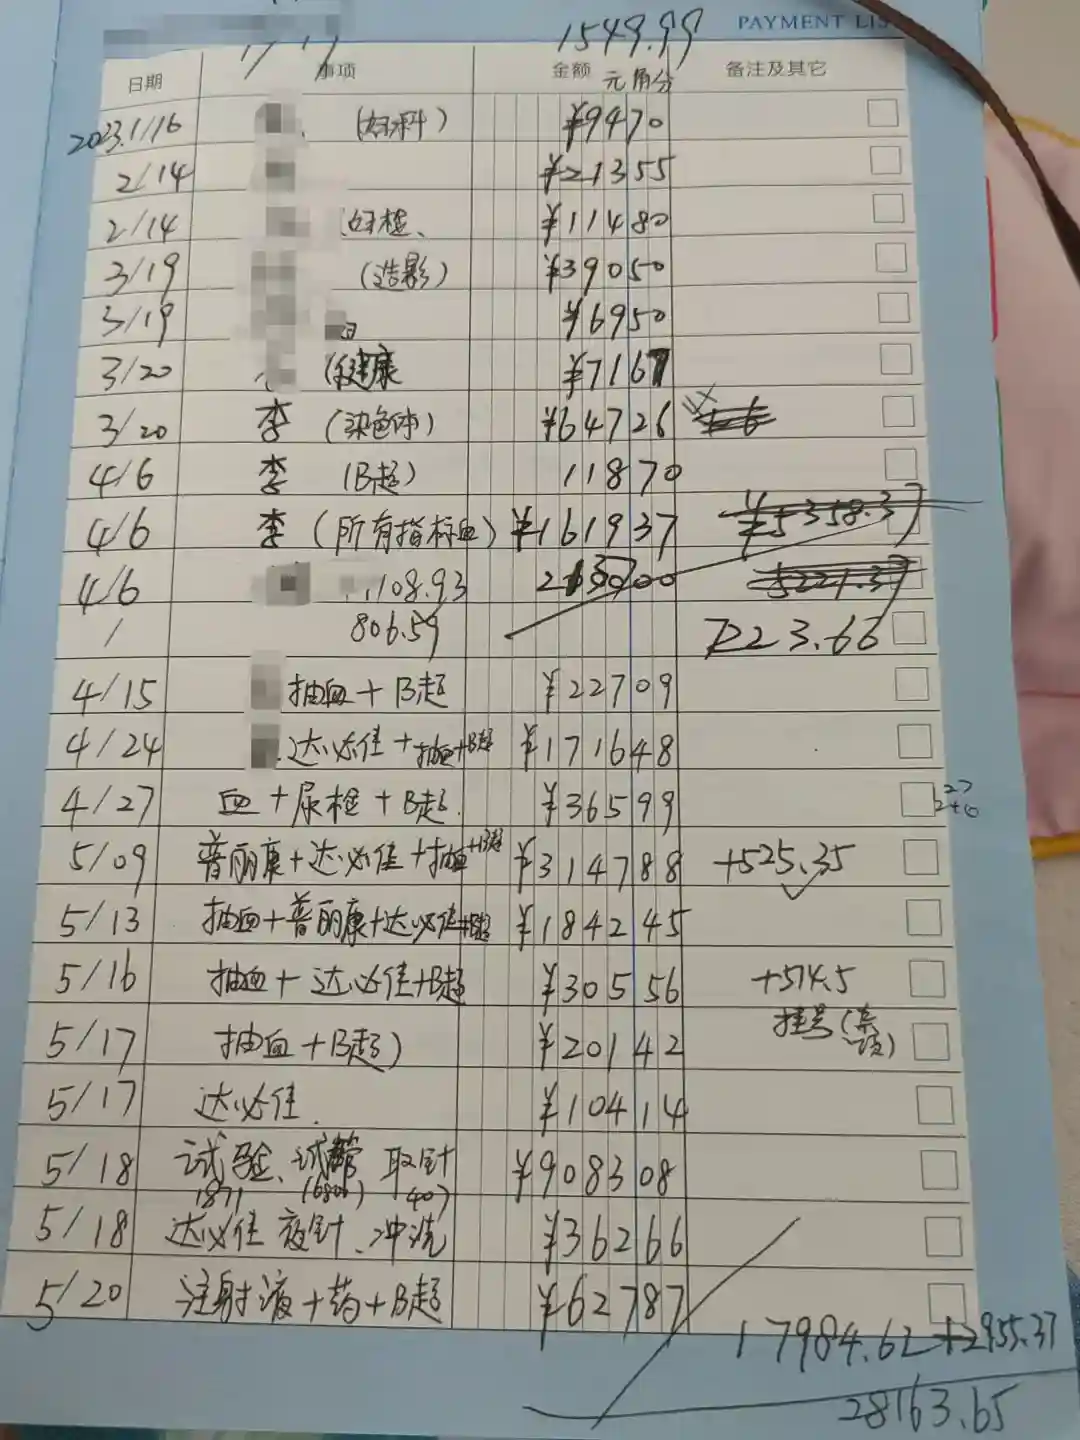 1549.99 PAYMENT LIS
日期 事项 金额 元角分 备注及其它
2023.1/16 (妇科) ¥9470
2/14 ¥21355
2/14 妇检、 ¥11480
3/19 (造影) ¥39050
3/19 ¥6950
3/20 健康 ¥7167
3/20 李 (染色体) ¥64726
4/6 李 (B超) 11870
4/6 李 (所有指标血) ¥161937 ¥5358.37
4/6 108.93 5221.37
/ 806.59 7223.66
4/15 抽血+B超 ¥22709
4/24 达必佳+抽血+B超 ¥171648
4/27 血+尿检+B超 ¥36599
5/09 普丽康+达必佳+抽血+B超 ¥314788 +525.35
5/13 抽血+普丽康+达必佳+B超 ¥184245
5/16 抽血+达必佳+B超 ¥30556 +514.5
挂号(
5/17 抽血+B超) ¥20142
5/17 达必佳. ¥10414
5/18 试验、试管 取针 ¥908308
1871 (6806) 407
5/18 达必佳 夜针、冲洗 ¥36266
5/20 注射液+药+B超 ¥62787
17984.62+2955.37
28163.65